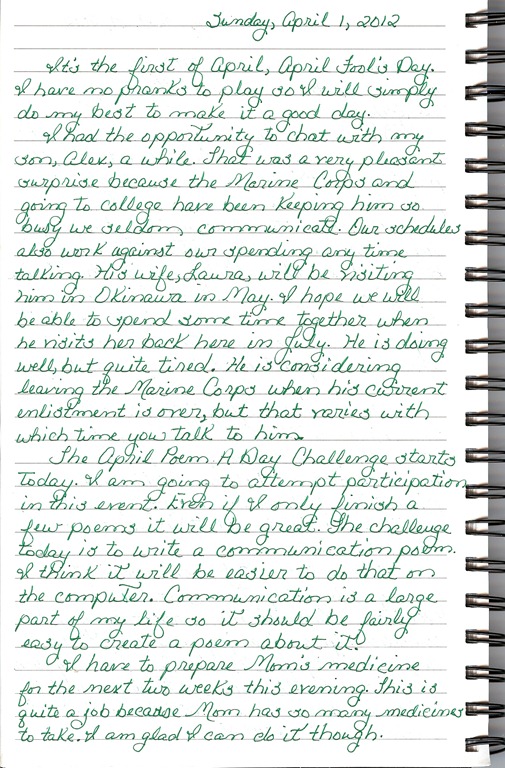 Sunday, April 1, 2012
It's the first of April, April Fool's Day.
I have no pranks to play so I will simply
do my best to make it a good day.
I had the opportunity to chat with my
son, Alex, a while. That was a very pleasant
surprise because the Marine Corps and
going to college have been keeping him so
busy we seldom communicate. Our schedules
also work against our spending any time
talking. His wife, Laura, will be visiting
him in Okinawa in May. I hope we will
be able to spend some time together when
he visits her back here in July. He is doing
well, but quite tired. He is considering
leaving the Marine Corps when his current
enlistment is over, but that varies with
which time you talk to him.
The April Poem A Day Challenge starts
today. I am going to attempt participation
in this event. Even if I only finish a
few poems it will be great. The challenge
today is to write a communication poem.
I think it will be easier to do that on
the computer. Communication is a large
part of my life so it should be fairly
easy to create a poem about it!
I have to prepare Mom's medicine
for the next two weeks this evening. This is
quite a job because Mom has so many medicines
to take. I am glad I can do it though.